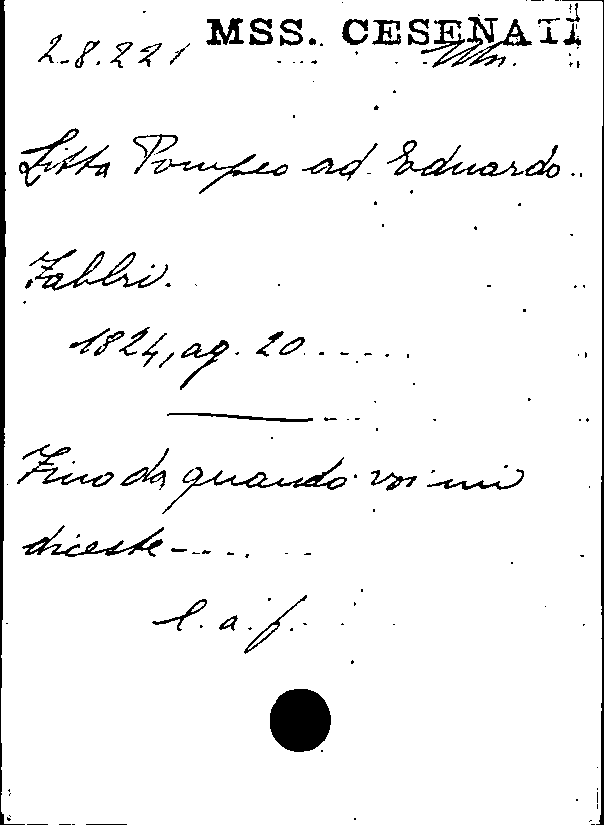 MSS. CESENATI
2.8.221
Litta Pompeo ad Eduardo
Fabbri.
1824, ag. 20
Fino da quando voi mi
diceste
l. a. f.